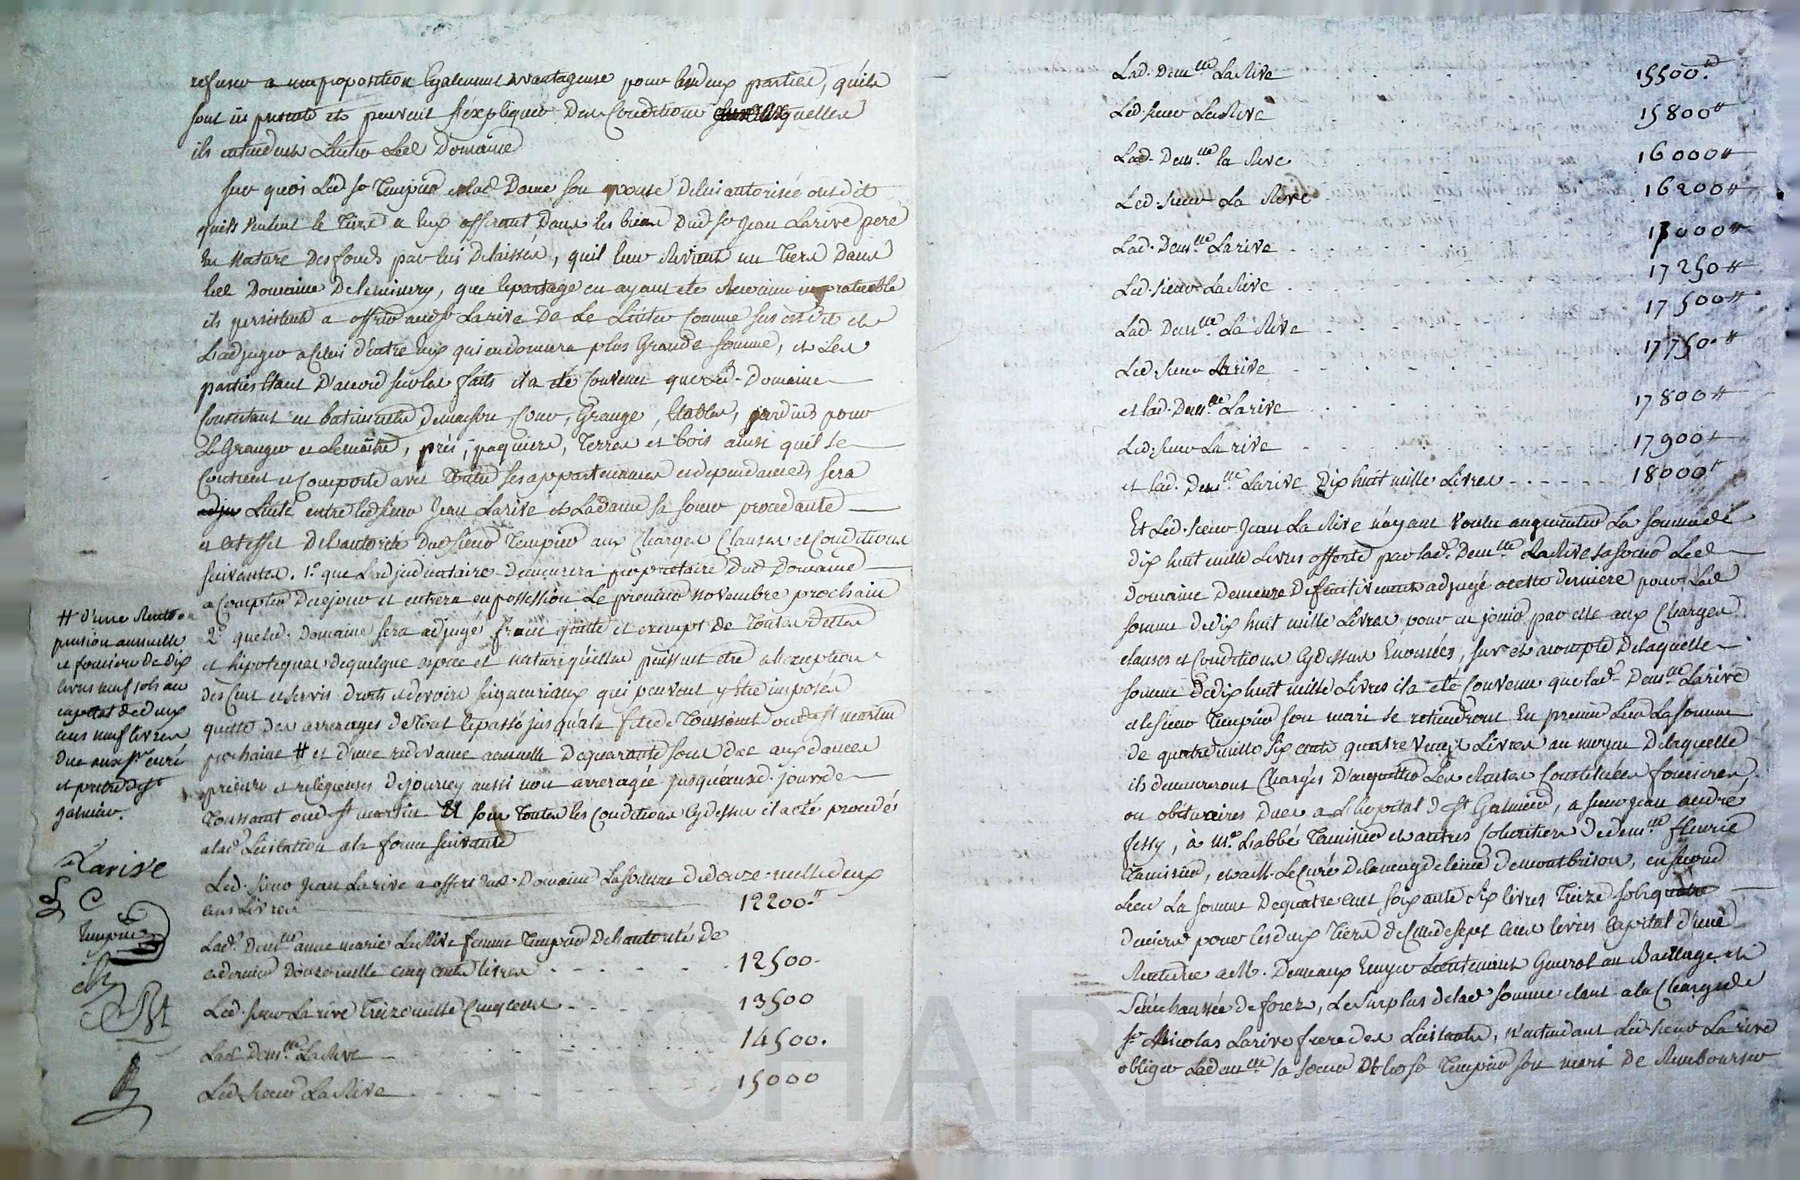 refuser a une proposition Egalement avantageuse pour les deux parties, quils
sont icy presents et peuvent s'expliquer Des Conditions quelles
ils entendent Liciter Led Domaine
Sur quoi Led Sr Tempier et lad Dame son epouse De lui autorisée ont dit
quils veulent le tiers a eux afferant Dans les biens Dud Sr Jean Larive pere
En Nature des fonds par lui Delaissés, quil leur Revient un tiers Dans
led Domaine De , que le partage en ayant eté Reconnu impraticable
ils persistent a offrir aud Sr Larive De Le Liciter Comme sus est dit et
L'adjuger a celui d'entre eux qui en donnera plus Grande somme, et Les
parties Etant D'accord sur les faits il a eté Convenu que Led. Domaine
Consistant en batiments De maitre, Cour, Grange, Etables, jardins pour
Le Granger et le maitre, prés, paquiers, Terres et bois ainsi quil se
Contient et Comporte avec Toutes ses appartenances et dependances, sera
Licité entre led sieur Jean Larive et La dame sa soeur procedante
a cet effet De l'autorité Dud sieur Tempier aux Charges Clauses et Conditions
suivantes. 1.° que L'adjudicataire Demeurera proprietaire Dud Domaine
a Compter De ce jour et entrera en possession Le premier novembre prochain
2.° que led. Domaine sera adjugé franc quitte et exempt de Toutes dettes
et hipoteques de quelque espece et nature qu'elles puissent etre a l'exception
des Cens et servis droits et devoirs seigneuriaux qui peuvent y etre imposés
quitte des arrerages de tout le passé jusqu'a la fete de Toussaint ou de St martin
prochaine # et d'une redevance annuelle De quarante sous due aux dames
prieure et religieuses de jourcey aussi non arreragée jusqu'aud. jour de
Toussaint ou de St martin Et sous Toutes les Conditions Cy dessus il a eté procedé
a lad. Licitation a la forme suivante
# d'une Rente
pension annuelle
et fonciere de Dix
livres neuf sols au
capital de deux
cens neuf livres
due aux Srs curé
et pretres de St
galmier.
Larive
C
Tempier
Led. sieur Jean Larive a offert dud. Domaine La somme de douze mille deux
cens Livres 12200.#
Lad. Demlle anne marie La Rive femme Tempier De l'autorité de
ce dernier Douze mille cinq cents livres - - - 12500.
Led. sieur La rive Treize mille Cinq cens - - - 13500
Lad. Demlle La Rive - - - 14500.
Led. sieur La Rive - - - 15000
Lad. Demlle La Rive . . . . 15500.#
Led. sieur La Rive 15800#
Lad. Demlle la Rive . . . 16000#
Led. sieur La Rive 16200#
Lad. Demlle Larive . . . . 17000#
Led. sieur La Rive . . . . 17250#
Lad. Demlle La Rive . . . . 17500#
Led. sieur Larive . . . . 17750.#
et lad. Demlle Larive . . . . 17800#
Led. sieur La rive . . . . 17900#
et lad. Demlle Larive Dix huit mille Livres - - - - 18000#
Et Led. sieur Jean La Rive n'ayant voulu augmenter La somme de
dix huit mille Livres offerte par lad. Demlle La Rive sa soeur Led
domaine demeure Definitivement adjugé a cette derniere pour Lad
somme de dix huit mille Livres, pour en jouir par elle aux Charges
clauses et Conditions Cy dessus Enoncées, sur et a compte De laquelle
somme de dix huit mille Livres il a eté Convenu que lad. Demlle Larive
et le sieur Tempier son mari se retiendront En premier Lieu La somme
de quatre mille six cents quatre vingt Livres au moyen De laquelle
ils demeureront Chargés D'acquitter Les Rentes Constituées foncieres
ou obituaires Dues a L'hopital de St Galmier, a sieur jean andré
fessy, a Mr. L'abbé Tamisier et autres heritiers de demlle fleurie
Tamisier, et a M. Le Curé De la magdeleine de montbrison, en second
Lieu La somme De quatre cent soixante six livres treize sols quatre
deniers pour les deux Tiers de livres Capital d'une
Rente due a M. Lieutenant General au Baillage et
senechaussée de forez, Le surplus de lad somme etant a la Charge de
Sr Nicolas Larive frere des Licitants, n'entendant Led. sieur La rive
obliger Lad emlle sa soeur et led Sr Tempier son mari de Rembourser
CHAREYRON